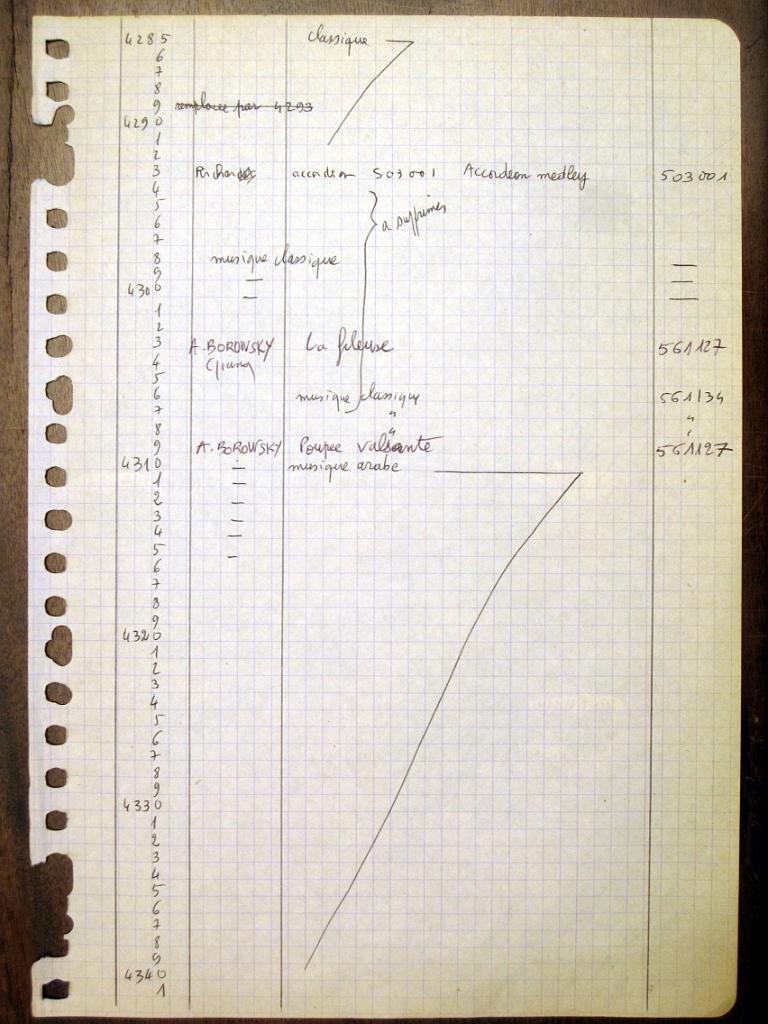 4285 classique
6
7
8
9 remplacee par 4293
4290
1
2
3 Richard accordeon 503001 Accordeon medley 503001
4
5
6 a supprimer
7
8 musique classique —
9 — —
4300 — —
1
2
3 A. BOROWSKY La fileuse 561127
4 (piano)
5
6 musique classique 561134
7 " "
8 " "
9 A. BOROWSKY Poupee valsante 561127
4310 — musique arabe
1 —
2 —
3 —
4 —
5 —
6
7
8
9
4320
1
2
3
4
5
6
7
8
9
4330
1
2
3
4
5
6
7
8
9
4340
1